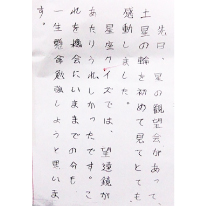 先日、星の観望会があって、
土星の輪を初めて見てとても
感動しました。
星座クイズでは、望遠鏡が
あたりうれしかったです。こ
れを機会にいままでの分も
一生懸命勉強しようと思いま
す。